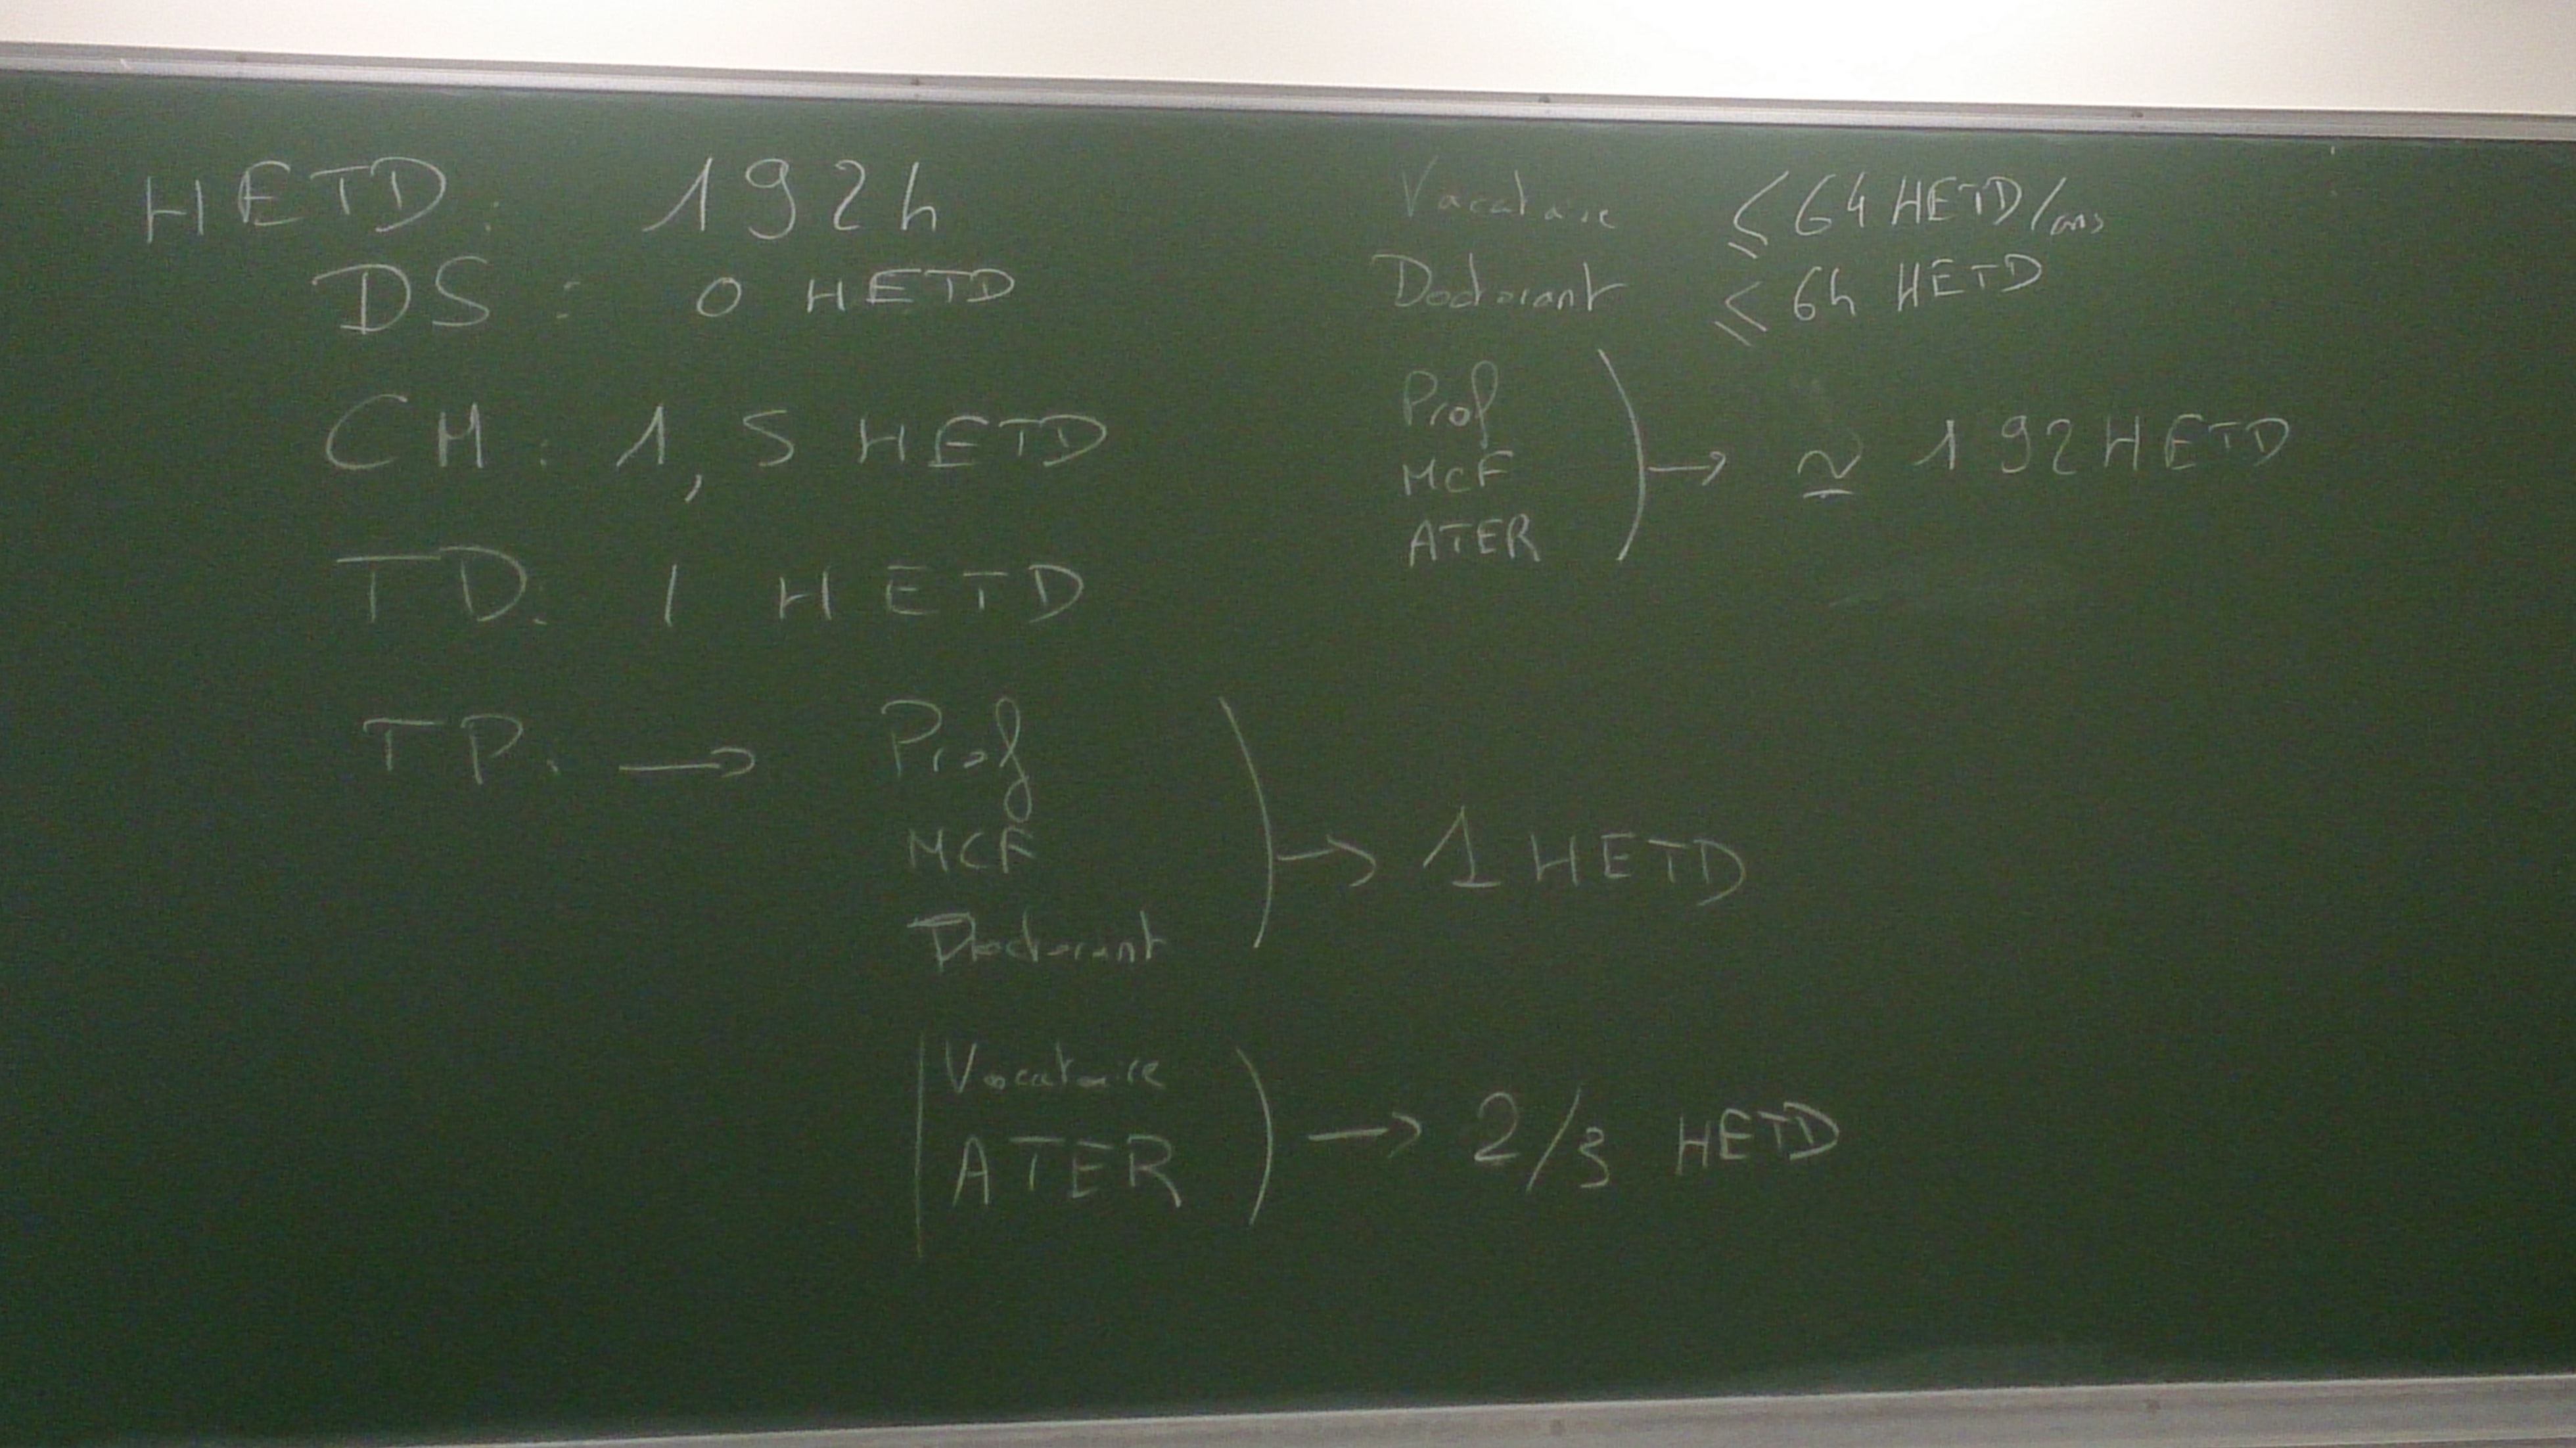 HETD : 192h
DS : 0 HETD
CM : 1,5 HETD
TD : 1 HETD
TP. → Prof
MCF
Doctorant
→ 1 HETD
Vacataire
ATER
→ 2/3 HETD
Vacataire ≤ 64 HETD/ans
Doctorant ≤ 64 HETD
Prof
MCF
ATER
→ ≃ 192 HETD